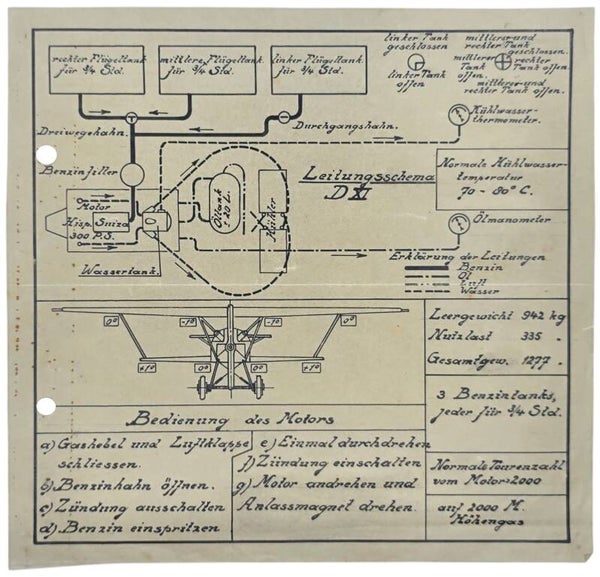 rechter Flügeltank
für ¾ Std.
mittlere Flügeltank
für ¾ Std.
linker Flügeltank
für ¾ Std.
linker Tank
geschlossen
linker Tank
offen
mittlerer und
rechter Tank
geschlossen.
mittlerer
Tank
offen.
rechter
Tank
offen.
mittlerer und
rechter Tank
offen.
Dreiwegehahn.
Durchgangshahn.
Kühlwasser-
thermometer.
Benzinfilter
Leitungsschema
D XI
Normale Kühlwasser-
temperatur
70 - 80° C.
Motor
Hisp. Suiza
300 P.S.
Öltank
20 L.
Kühler
Wassertank.
Ölmanometer
Erklärung der Leitungen
Benzin
Öl
Luft
Wasser
0°
-1°
-1°
0°
+1°
+1°
Leergewicht 942 kg
Nutzlast 335 "
Gesamtgew. 1277 "
3 Benzintanks,
jeder für ¾ Std.
Normale Tourenzahl
vom Motor: 2000
auf 2000 M.
Höhengas
Bedienung des Motors
a) Gashebel und Luftklappe
schliessen.
b) Benzinhahn öffnen.
c) Zündung ausschalten
d) Benzin einspritzen
e) Einmal durchdrehen
f) Zündung einschalten
g) Motor andrehen und
Anlassmagnet drehen.